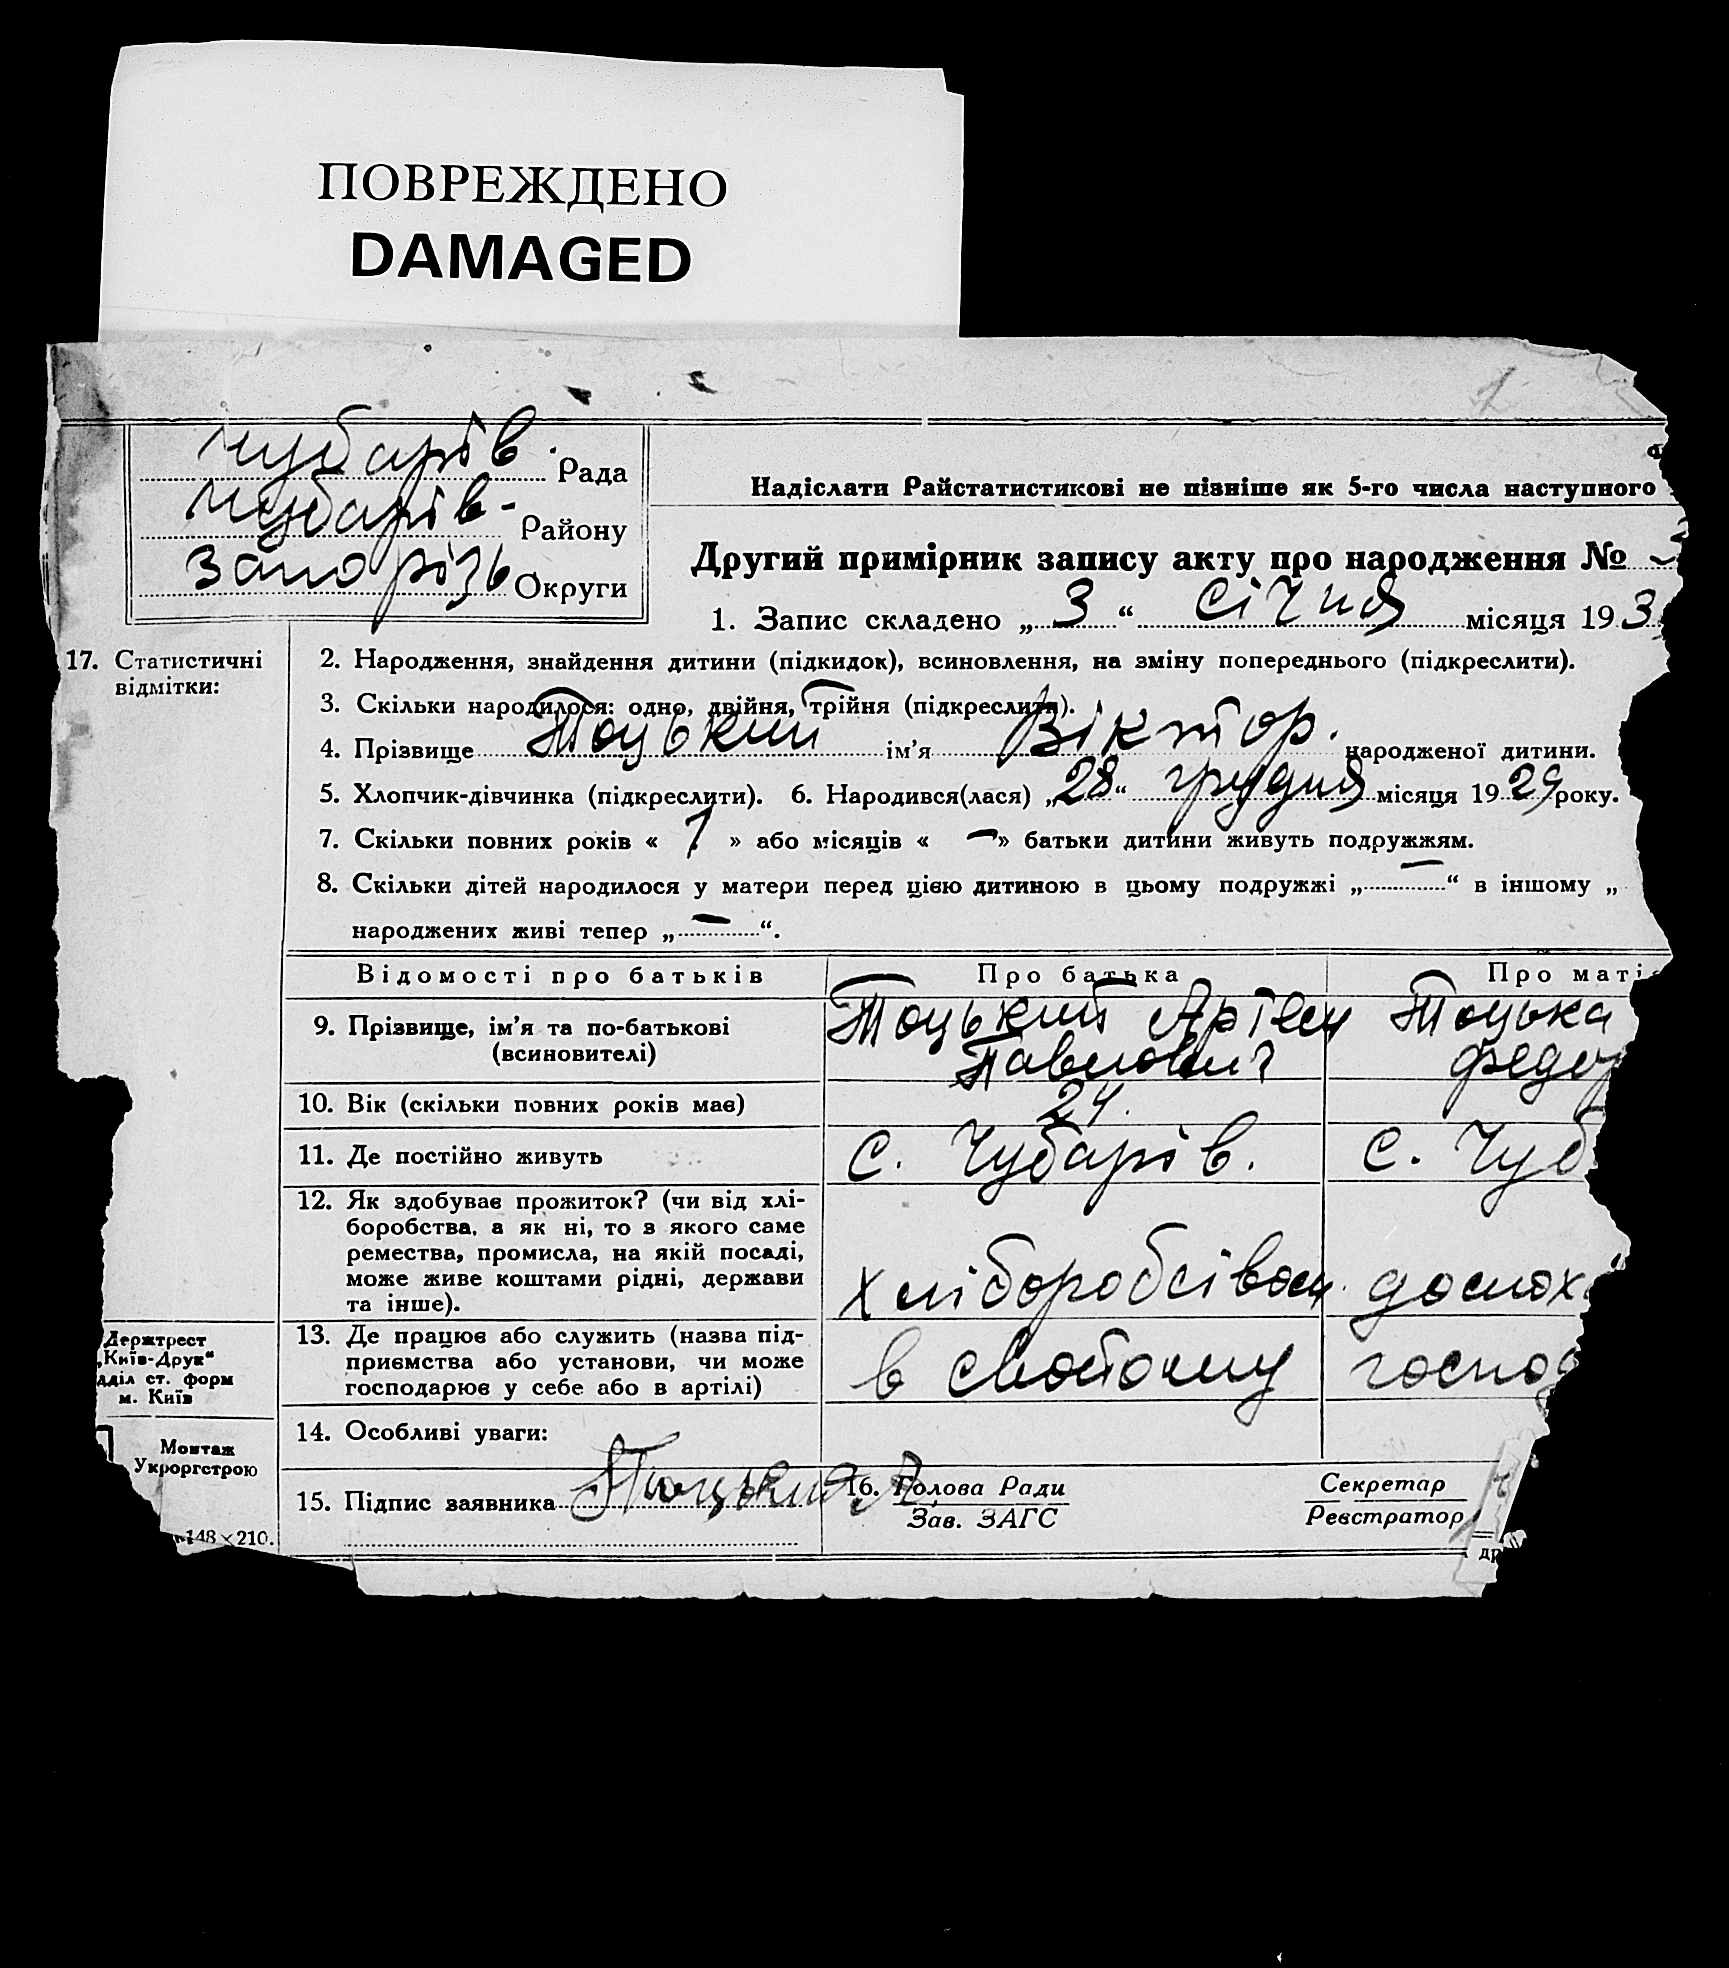 ПОВРЕЖДЕНО
DAMAGED
Чубарів. Рада
Чубарів- Району
Запорізь Округи
Надіслати Райстатистикові не пізніше як 5-го числа наступного
Другий примірник запису акту про народження №
1. Запис складено „3“ Січня місяця 193
17. Статистичні відмітки:
2. Народження, знайдення дитини (підкидок), всиновлення, на зміну попереднього (підкреслити).
3. Скільки народилося: одно, двійня, трійня (підкреслити).
4. Прізвище Тоцький ім’я Віктор. народженої дитини.
5. Хлопчик-дівчинка (підкреслити). 6. Народився(лася) „28“ грудня місяця 1929 року.
7. Скільки повних років « 1 » або місяців « — » батьки дитини живуть подружжям.
8. Скільки дітей народилося у матери перед цією дитиною в цьому подружжі „—“ в іншому „
народжених живі тепер „—“.
Відомості про батьків Про батька Про маті
9. Прізвище, ім’я та по-батькові (всиновителі)
Тоцький Артем Павлович
Тоцька Федор
10. Вік (скільки повних років має) 24.
11. Де постійно живуть с. Чубарів. с. Чуб
12. Як здобуває прожиток? (чи від хлі-
боробства, а як ні, то з якого саме
ремества, промисла, на якій посаді,
може живе коштами рідні, держави
та інше).
хліборобсівом домох
13. Де працює або служить (назва під-
приємства або установи, чи може
господарює у себе або в артілі)
в своєому господ
14. Особливі уваги:
15. Підпис заявника Тоцький А
16. Голова Ради
Зав. ЗАГС
Секретар
Реєстратор
Держтрест
„Київ-Друк“
дділ ст. форм
м. Київ
Монтаж
Укроргстрою
148×210.